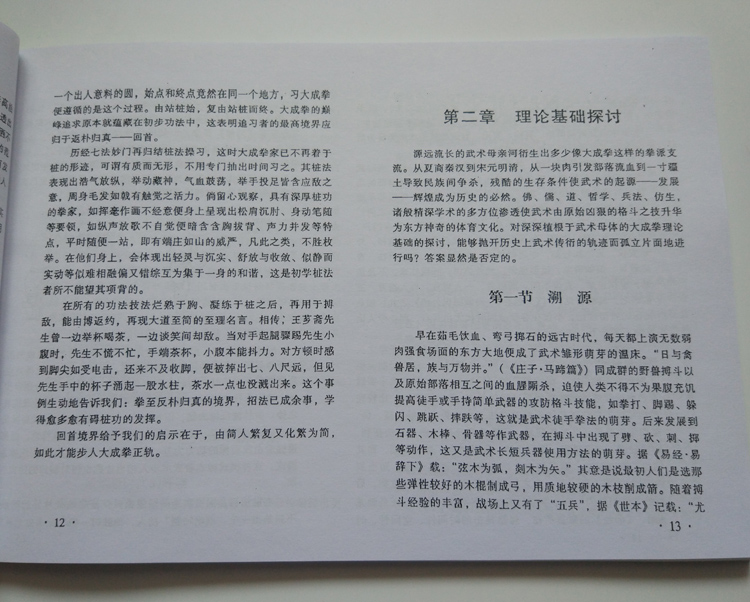 一个出人意料的圆，始点和终点竟然在同一个地方，习大成拳
便遵循的是这个过程。由站桩始，复由站桩而终。大成拳的巅
峰追求原本就蕴藏在初步功法中，这表明追习者的最高境界应
归于返朴归真——回首。
历经七法妙门再归结桩法操习，这时大成拳家已不再着于
桩的形迹，可谓有质而无形，不用专门抽出时间习之。其桩法
表现出浩气放纵，举动藏神，气血鼓荡，举手投足皆含应敌之
意，周身毛发如戟有触觉之活力。倘留心观察，具有深厚桩功
的拳家，如挥毫作画不经意便身上呈现出松肩沉肘、身动笔随
等要领，如纵声放歌不自觉便暗含含胸拔背、声力并发等特
点，平时随便一站，即有端庄如山的威严，凡此之类，不胜枚
举。在他们身上，会体现出轻灵与沉实、舒放与收敛、似静而
实动等似难相融偏又错综互为集于一身的和谐，这是初学桩法
者所不能望其项背的。
在所有的功法技法烂熟于胸、凝练于桩之后，再用于搏
敌，能由博返约，再现大道至简的至理名言。相传，王芗斋先
生曾一边举杯喝茶，一边谈笑间却敌。当对手起腿骤踢先生小
腹时，先生不慌不忙，手端茶杯，小腹本能抖力。对方顿时感
到脚尖如受电击，还来不及收脚，便被摔出七、八尺远，但见
先生手中的杯子涌起一股水柱，茶水一点也没溅出来。这个事
例生动地告诉我们：拳至反朴归真的境界，招法已成余事，学
得愈多愈有碍桩功的发挥。
回首境界给予我们的启示在于，由简入繁复又化繁为简，
如此才能步入大成拳正轨。
· 12 ·
第二章 理论基础探讨
源远流长的武术母亲河衍生出多少像大成拳这样的拳派支
流。从夏商秦汉到宋元明清，从一块肉引发部落流血到一寸疆
土导致民族间争杀，残酷的生存条件使武术的起源——发展
——辉煌成为历史的必然。佛、儒、道、哲学、兵法、仿生，
诸般精深学术的多方位渗透使武术由原始凶狠的格斗之技升华
为东方神奇的体育文化。对深深植根于武术母体的大成拳理论
基础的探讨，能够抛开历史上武术传衍的轨迹而孤立片面地进
行吗？答案显然是否定的。
第一节 溯 源
早在茹毛饮血、弯弓掷石的远古时代，每天都上演无数弱
肉强食场面的东方大地便成了武术雏形萌芽的温床。“日与禽
兽居，族与万物并。”（《庄子·马蹄篇》）同成群的野兽搏斗以
及原始部落相互之间的血腥厮杀，迫使人类不得不为果腹充饥
提高徒手或手持简单武器的攻防格斗技能，如拳打、脚踢、躲
闪、跳跃、摔跌等，这就是武术徒手拳法的萌芽。后来发展到
石器、木棒、骨器等作武器，在搏斗中出现了劈、砍、刺、掷
等动作，这又是武术长短兵器使用方法的萌芽。据《易经·易
辞下》载：“弦木为弧，剡木为矢。”其意是说最初人们是选那
些弹性较好的木棍制成弓，用质地较硬的木枝削成箭。随着搏
斗经验的丰富，战场上又有了“五兵”，据《世本》记载：“尤
· 13 ·